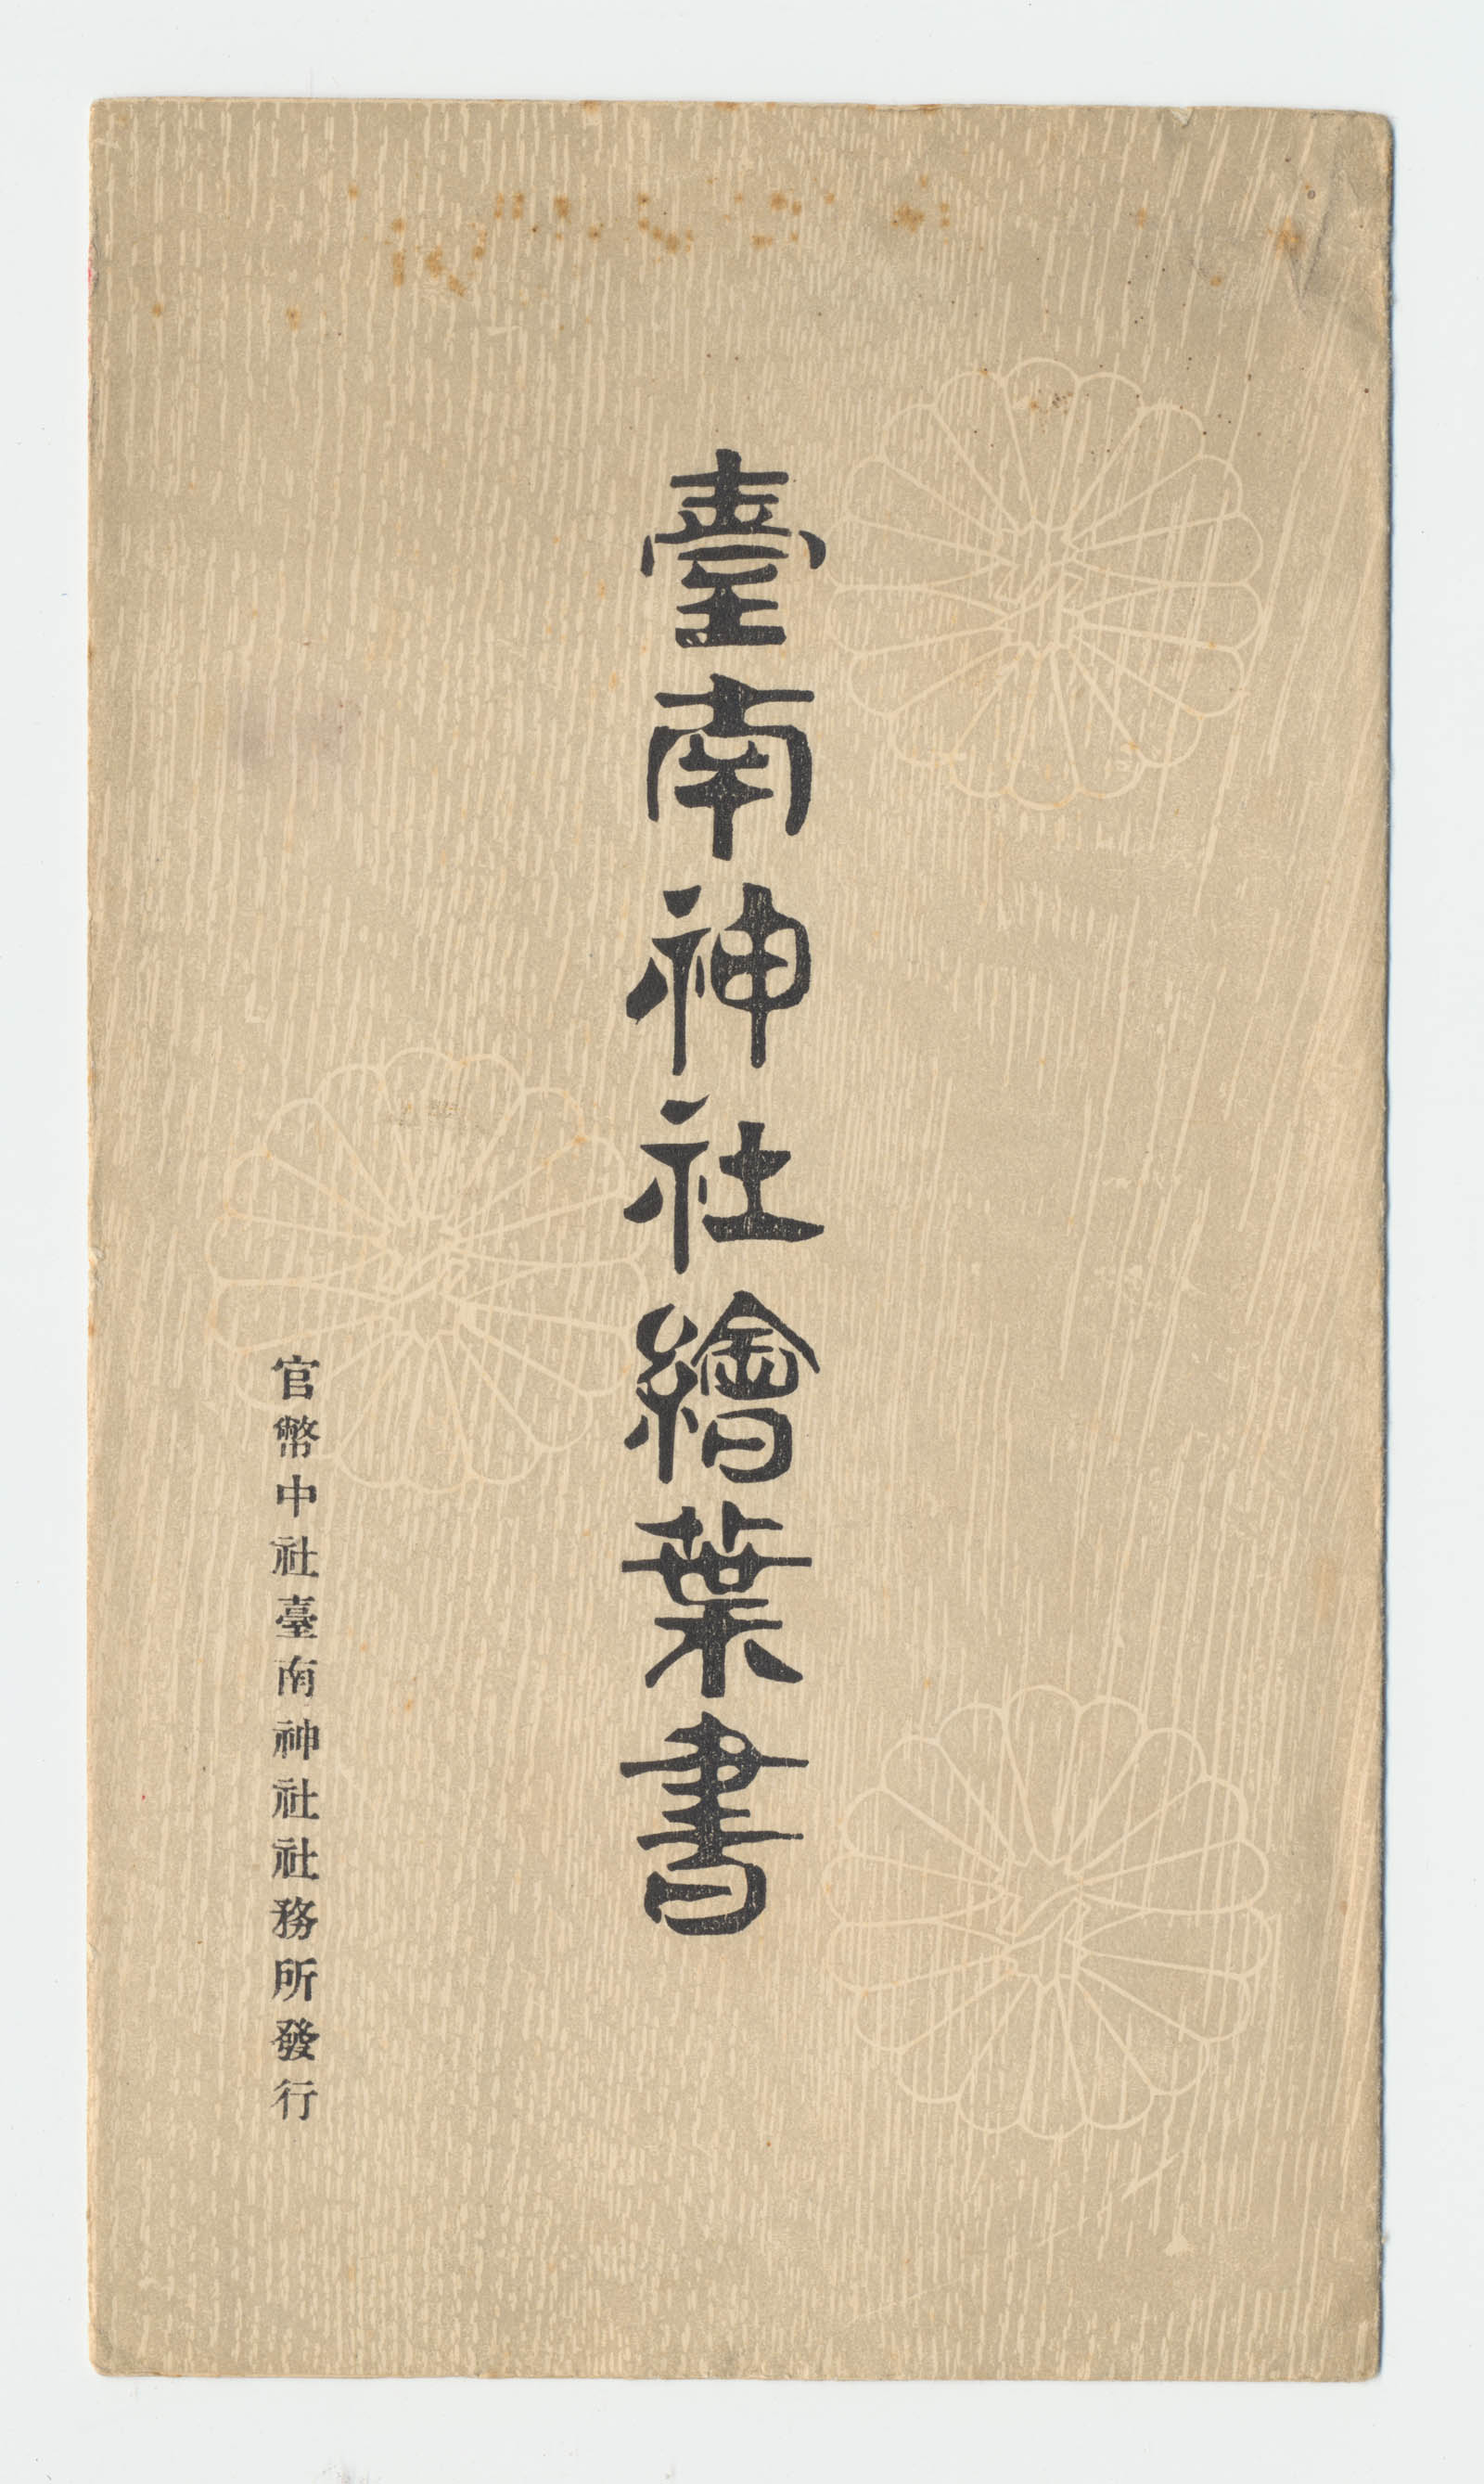 臺南神社繪葉書
官幣中社臺南神社社務所發行